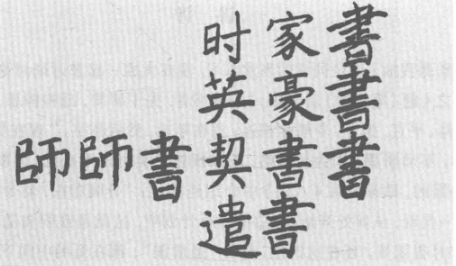 时家書
英豪書
師師書契書書
遣書